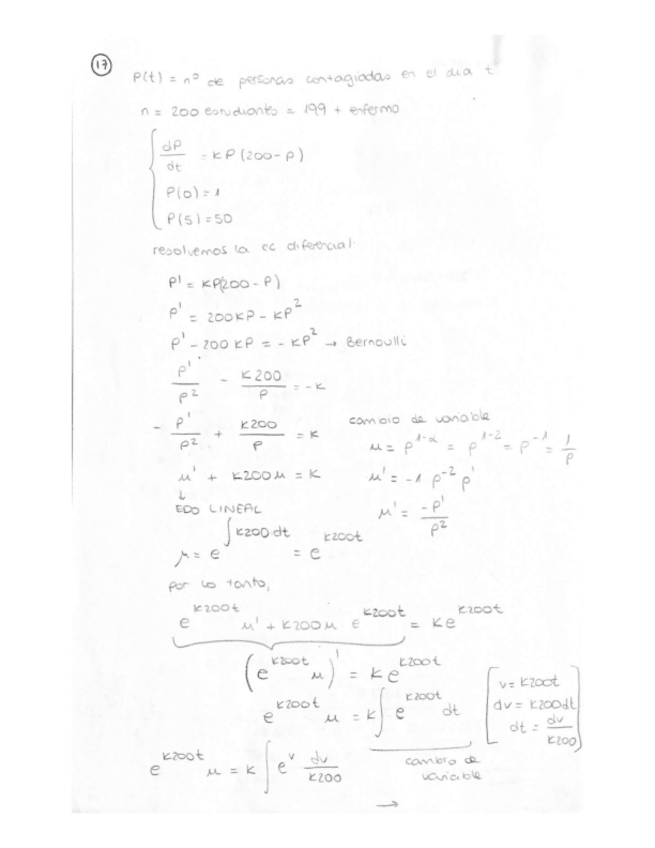 17
P(t) = nº de personas contagiadas en el dia t
n = 200 estudiantes = 199 + enfermo
dP/dt = KP(200-P)
P(0) = 1
P(5) = 50
resolvemos la ec diferencial:
P' = KP(200 - P)
P' = 200KP - KP²
P' - 200KP = -KP² → Bernoulli
P'/P² - K200/P = -K
- P'/P² + K200/P = K
cambio de variable
u = P^(1-α) = P^(1-2) = P^-1 = 1/P
u' + K200u = K
u' = -1 P^-2 P'
↓
EDO LINEAL
u' = -P'/P²
μ = e^(∫K200 dt) = e^(K200t)
por lo tanto,
e^(K200t) u' + K200u e^(K200t) = Ke^(K200t)
(e^(K200t) u)' = Ke^(K200t)
e^(K200t) u = K ∫ e^(K200t) dt
v = K200t
dv = K200dt
dt = dv/K200
cambio de
variable
e^(K200t) u = K ∫ e^v dv/K200
→